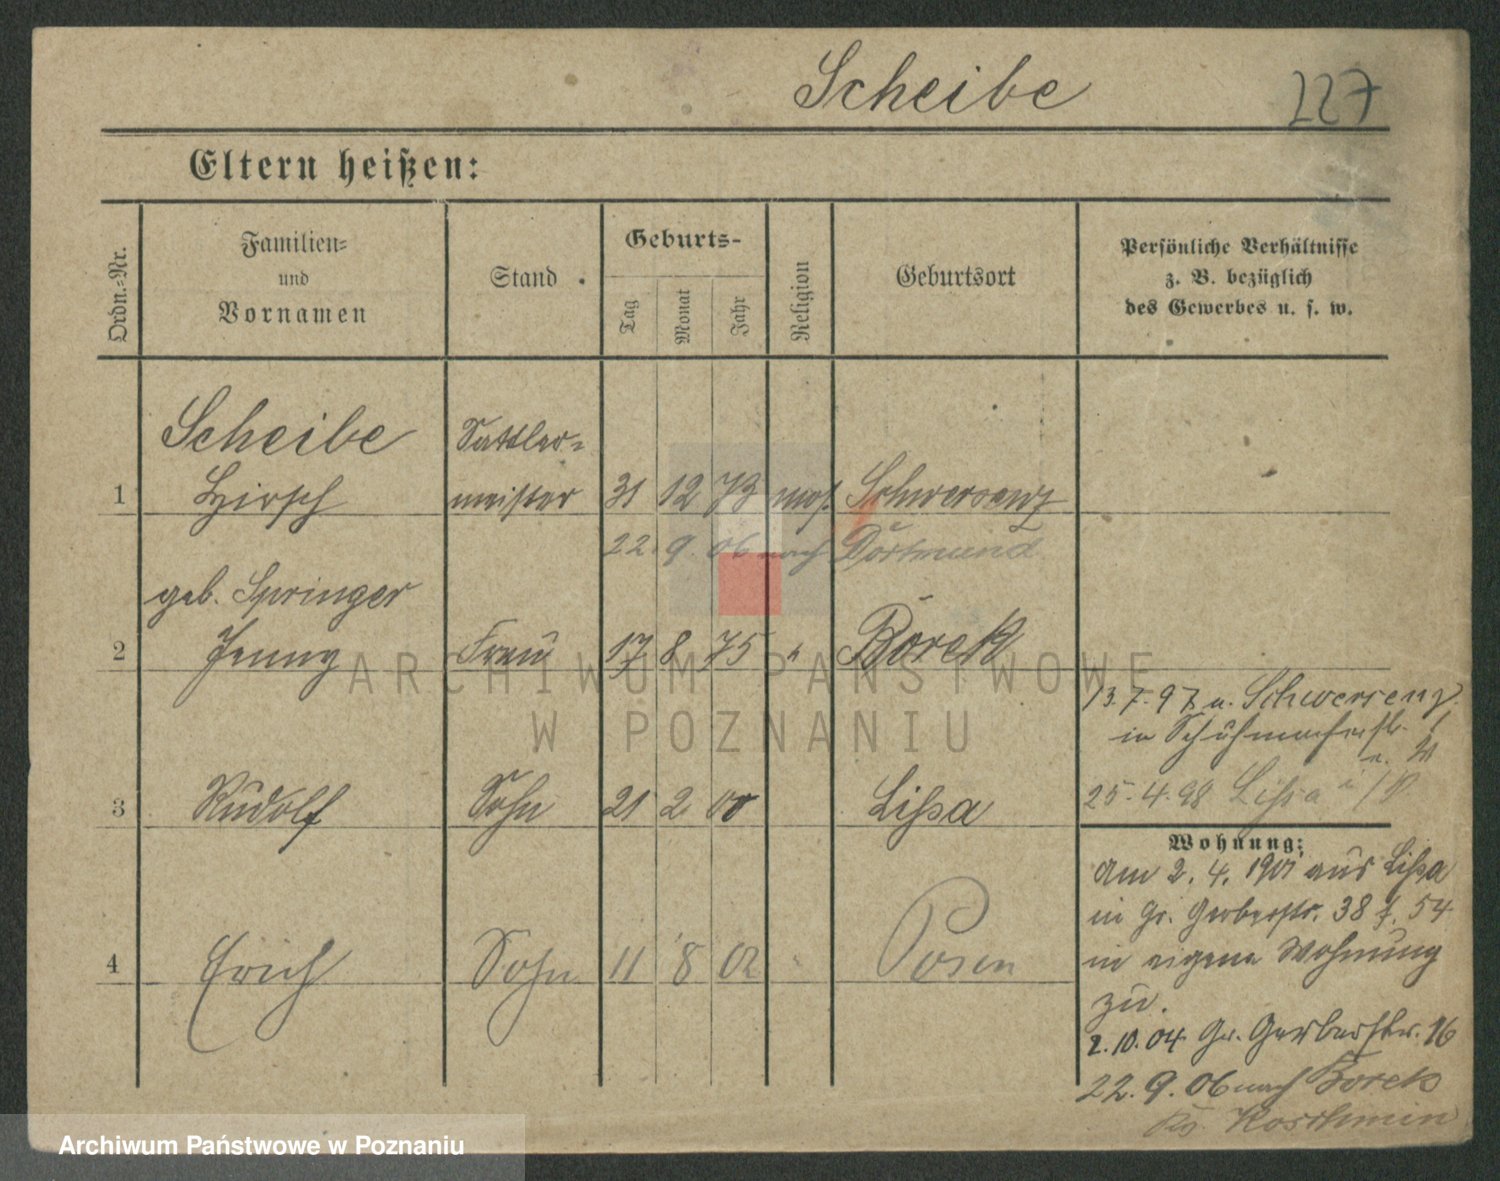 Scheibe 227
Eltern heißen:
Ordn.=Nr.
Familien=
und
Vornamen
Stand
Geburts-
Tag
Monat
Jahr
Religion
Geburtsort
Persönliche Verhältnisse
z. B. bezüglich
des Gewerbes u. s. w.
Scheibe Sattler=
1 Hirsch meister 31 12 73 mos. Schwersenz
22. 9. 06 nach Dortmund
geb. Springer
2 Jenny Frau 17 8 75 " Borek
13. 7. 97 n. Schwersenz
in Schuhmacherstr.
3 Rudolf Sohn 21 2 00 Lißa
25. 4. 98 Lißa i/P.
Wohnung:
Am 2. 4. 1901 aus Lißa
in Gr. Gerberstr. 38 54
in eigene Wohnung
zu.
4 Erich Sohn 11 8 02 " Posen
2. 10. 04 Gr. Gerberstr. 16
22. 9. 06 nach Borek
Krs. Koschmin
ARCHIWUM PAŃSTWOWE
W POZNANIU
Archiwum Państwowe w Poznaniu